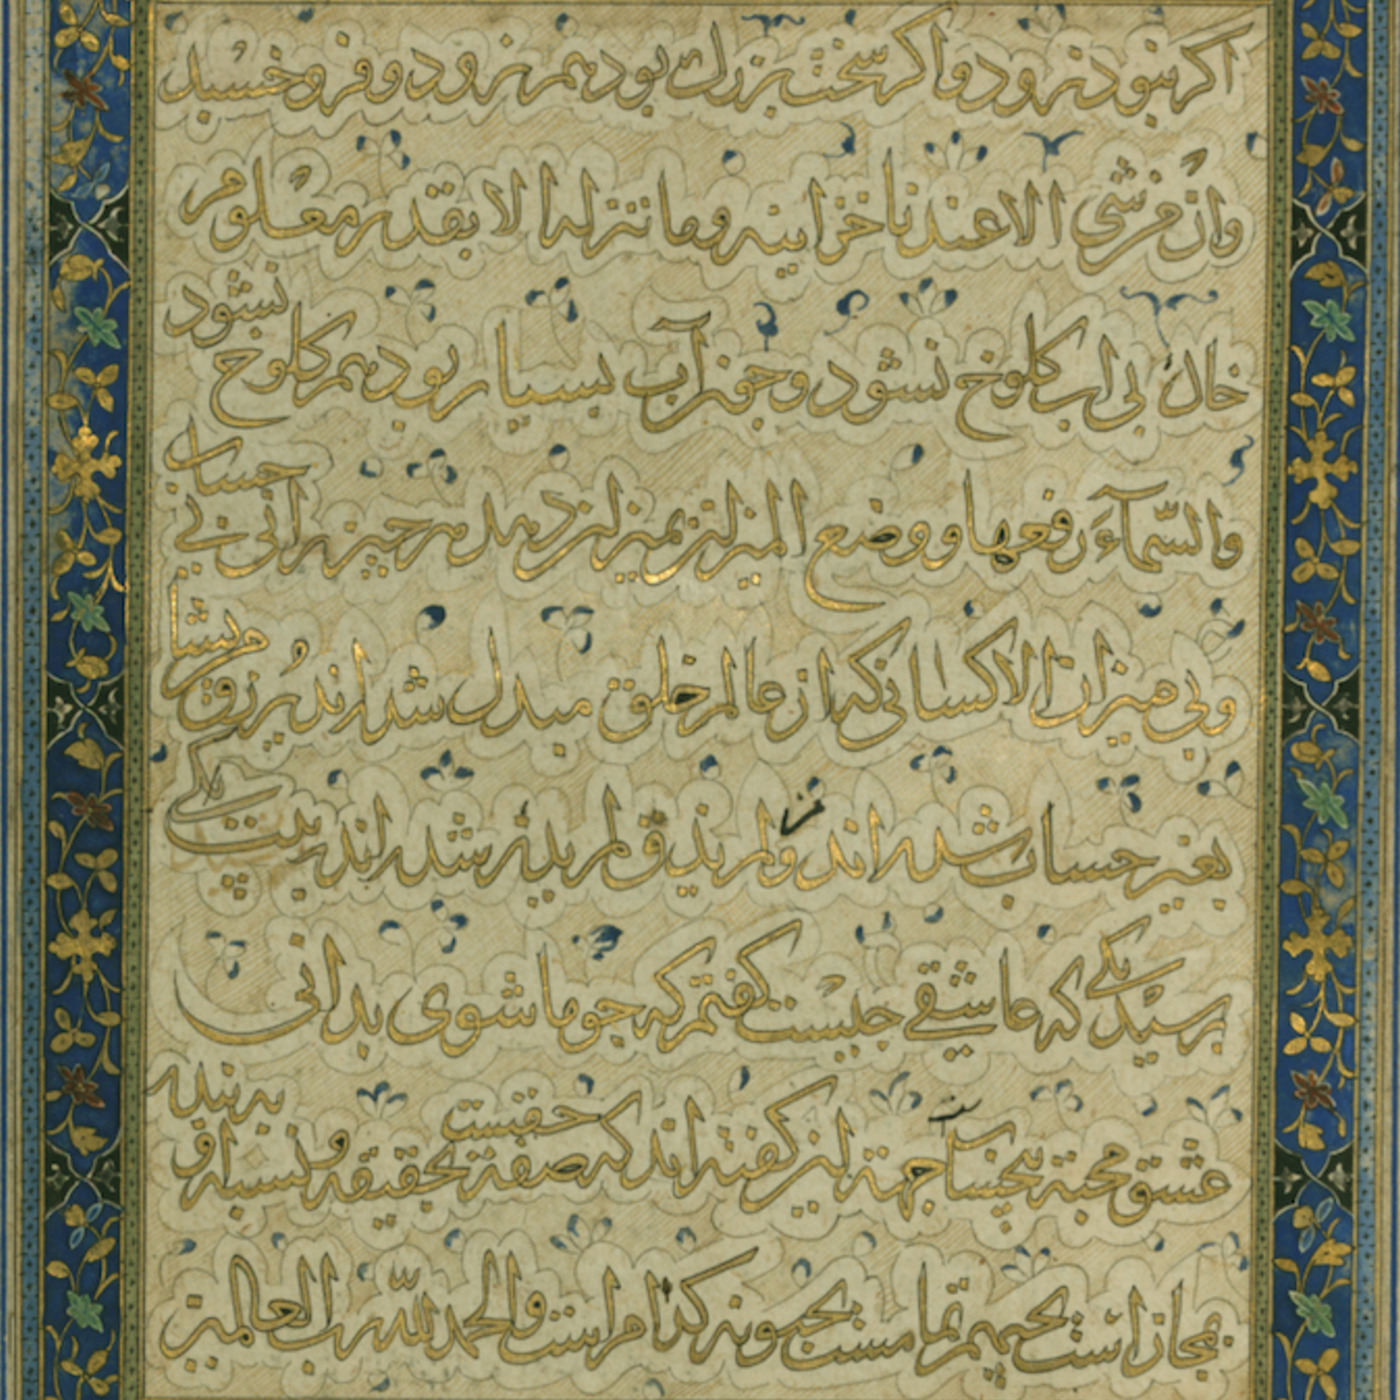 اکر نبود نرود واکر سخت بزرك بود هم نرود و فرو خسبد
وان من شی الا عندنا خزاینه وما ننزله الا بقدر معلوم
خاك بی اب کلوخ نشود وچون آب بسیار بود هم کلوخ نشود
والسّمآء رفعها ووضع المیزان بمیزان دهد هر چیز را نی بی حساب
وبی میزان الا کسانی که از عالم خلق مبدل شده اند یرزق من یشا
بغیر حساب شده اند ومن لم یذق لم یدر شده اند بیت
پرسید یکی که عاشقی چیست گفتم که چو ما شوی بدانی
عشق محبة بیحسابست جهة این گفته اند که صفة حقست بحقیقة ونسبة او به بنده
مجاز است یحبهم تمامست یحبونه کدام است والحمد لله رب العالمین